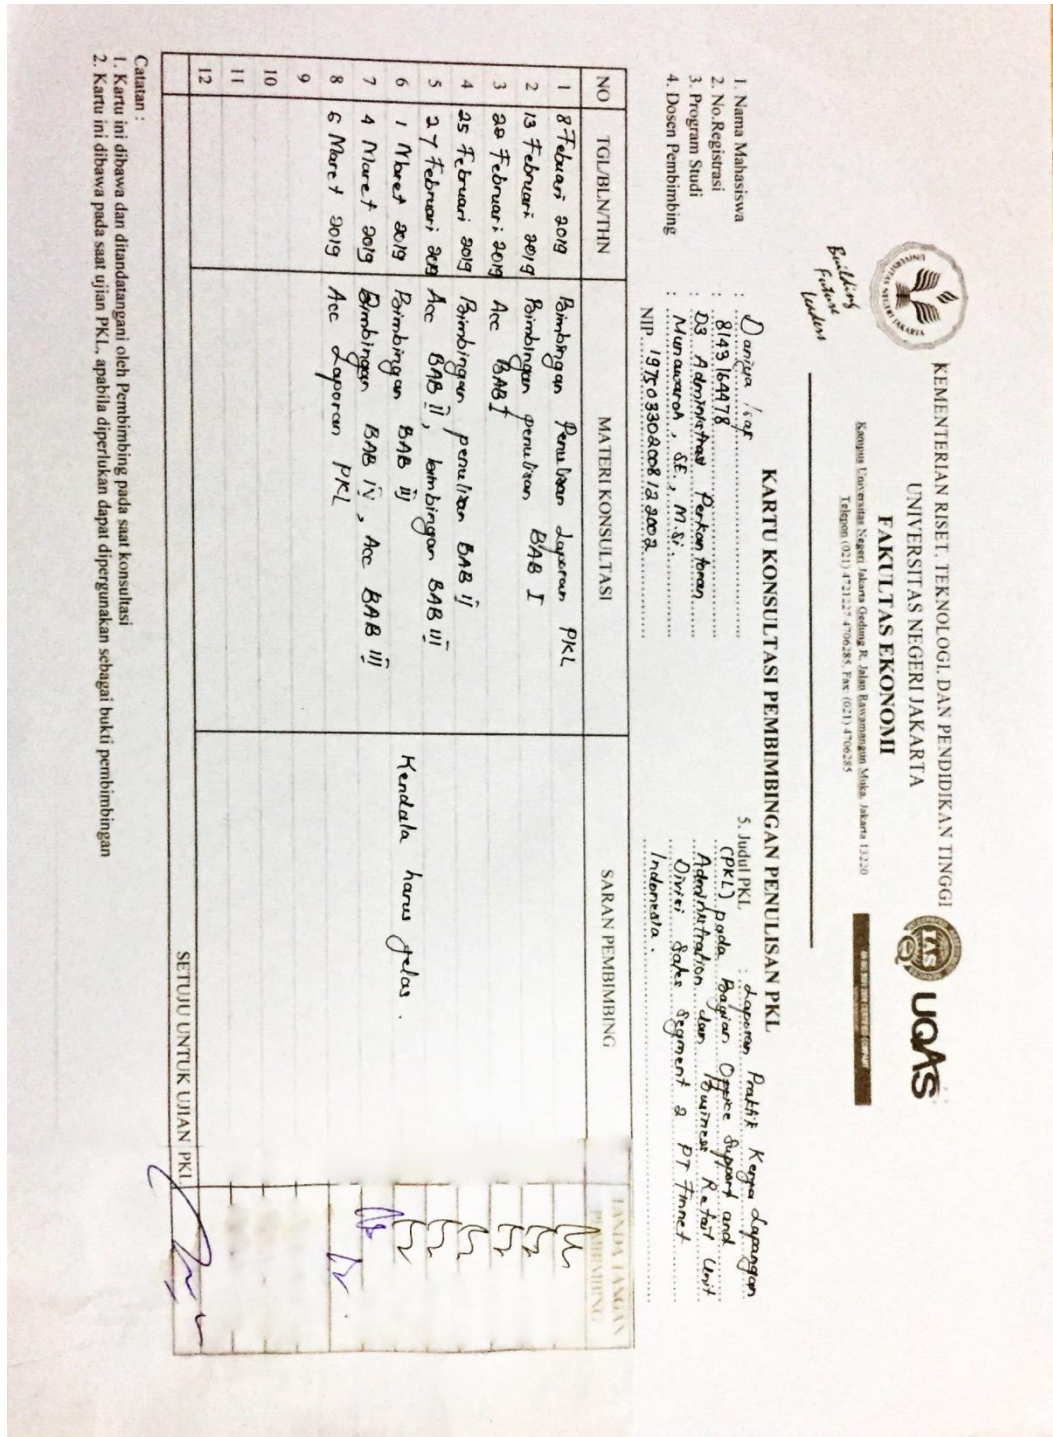 KEMENTERIAN RISET, TEKNOLOGI, DAN PENDIDIKAN TINGGI
UNIVERSITAS NEGERI JAKARTA
FAKULTAS EKONOMI
Kampus Universitas Negeri Jakarta Gedung R, Jalan Rawamangun Muka, Jakarta 13220
Telepon (021) 4721227 4706285, Fax: (021) 4706285
UNIVERSITAS NEGERI JAKARTA
Building
Future
Leaders
IAS
UQAS
KARTU KONSULTASI PEMBIMBINGAN PENULISAN PKL
1. Nama Mahasiswa : Daniya
2. No.Registrasi : 8143164478
3. Program Studi : D3 Administrasi Perkantoran
4. Dosen Pembimbing : Munawaroh, SE., M.Si.
NIP. 197503302008122002
5. Judul PKL : Laporan Praktik Kerja Lapangan
(PKL) pada Bagian Office Support and
Administration dan Business Retail Unit
Divisi Sales Segment 2 PT Finnet
Indonesia.
NO TGL/BLN/THN MATERI KONSULTASI SARAN PEMBIMBING TANDA TANGAN PEMBIMBING
1 8 Febuari 2019 Bimbingan Penulisan Laporan PKL
2 13 Februari 2019 Bimbingan penulisan BAB I
3 20 Februari 2019 Acc BAB I
4 25 Februari 2019 Bimbingan penulisan BAB II
5 27 Februari 2019 Acc BAB II, bimbingan BAB III
6 1 Maret 2019 Bimbingan BAB III Kendala harus jelas.
7 4 Maret 2019 Bimbingan BAB IV, Acc BAB III
8 6 Maret 2019 Acc Laporan PKL
9
10
11
12
SETUJU UNTUK UJIAN PKL
Catatan :
1. Kartu ini dibawa dan ditandatangani oleh Pembimbing pada saat konsultasi
2. Kartu ini dibawa pada saat ujian PKL, apabila diperlukan dapat dipergunakan sebagai bukti pembimbingan